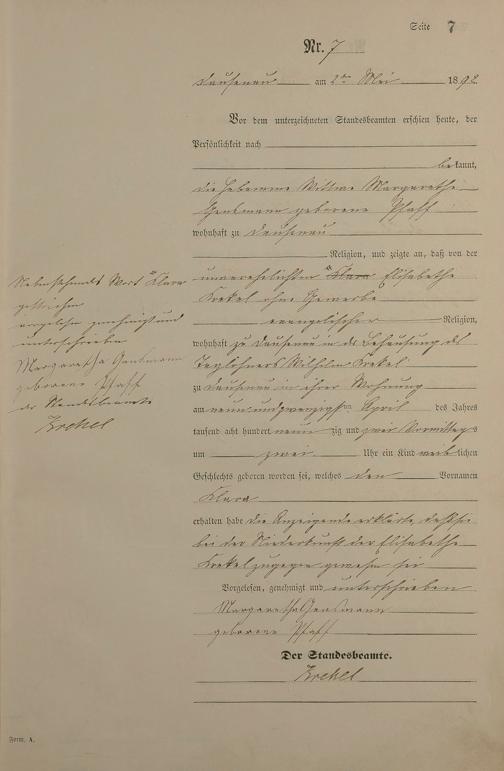 Seite 7
Nr. 7
Dausenau am 2ten Mai 1892
Vor dem unterzeichneten Standesbeamten erschien heute, der
Persönlichkeit nach
bekannt,
die Hebamme Wittwe Margaretha
Gensmann geborene Pfaff
wohnhaft zu Dausenau
Religion, und zeigte an, daß von der
unverehelichten Klara Elisabethe
Krekel ohne Gewerbe
evangelischer Religion,
wohnhaft zu Dausenau in der Behausung des
Taglöhners Wilhelm Krekel
zu Dausenau in ihrer Wohnung
am neun und zwanzigsten April des Jahres
tausend acht hundert neun zig und zwei Vormittags
um zwei Uhr ein Kind weiblichen
Geschlechts geboren worden sei, welches den Vornamen
Klara
erhalten habe die Anzeigende erklärte, daß sie
bei der Niederkunft der Elisabethe
Krekel zugegen gewesen sei
Vorgelesen, genehmigt und unterschrieben
Margaretha Gensmann
geborene Pfaff
Der Standesbeamte.
Krekel
Nebenstehendes Wort "Klara"
gestrichen
vorgelesen genehmigt und
unterschrieben
Margaretha Gensmann
geborene Pfaff
der Standesbeamte
Krekel
Form. A.